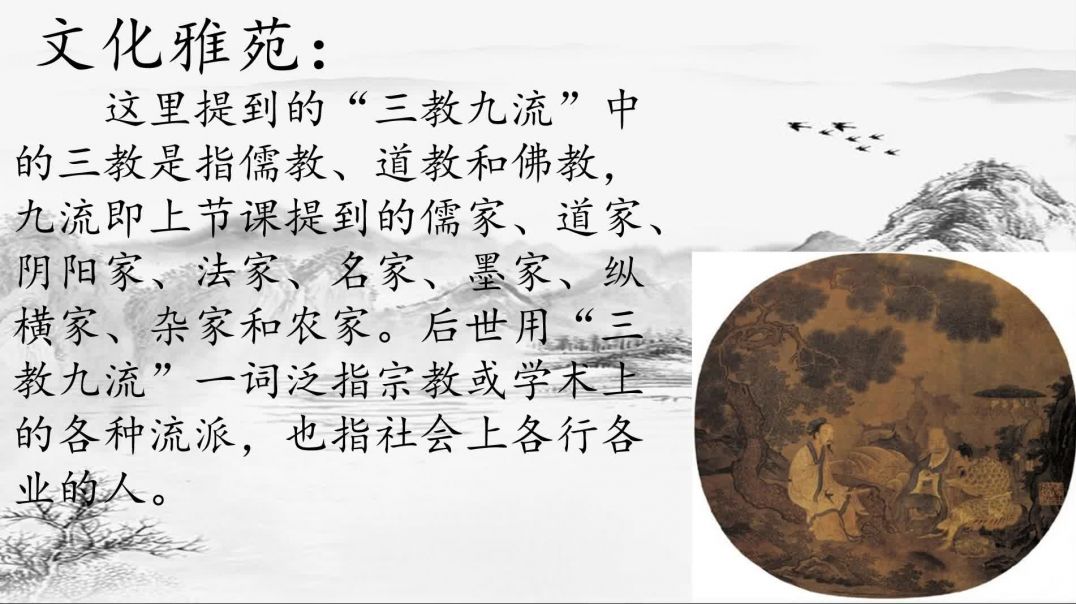 文化雅苑：
这里提到的“三教九流”中
的三教是指儒教、道教和佛教，
九流即上节课提到的儒家、道家、
阴阳家、法家、名家、墨家、纵
横家、杂家和农家。后世用“三
教九流”一词泛指宗教或学术上
的各种流派，也指社会上各行各
业的人。